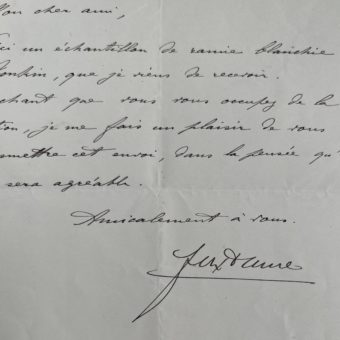 Mon cher ami,
ci un échantillon de ramie blanchie
onkin, que je viens de recevoir.
chant que vous vous occupez de la
tion, je me fais un plaisir de vous
smettre cet envoi, dans la pensée qu'
sera agréable.
Amicalement à vous.